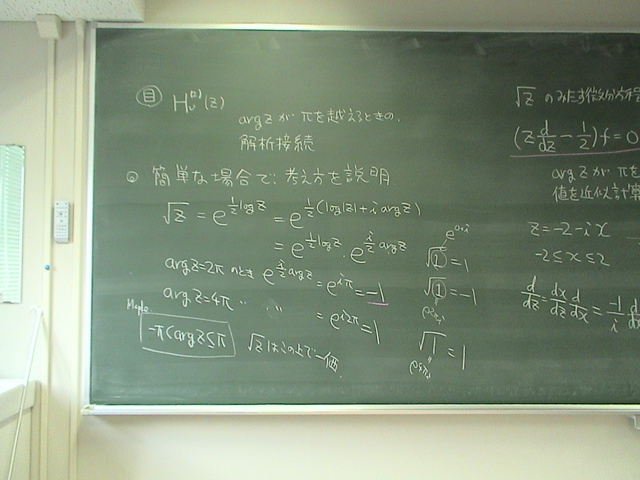 目 H_ν^{(2)}(z)
arg z が πを越えるときの、
解析接続
簡単な場合で、考え方を説明
√z = e^{½ log z} = e^{½(log|z| + i arg z)}
= e^{½ log z} · e^{i/2 arg z}
arg z = 2π のとき e^{i/2 arg z} = e^{iπ} = -1
arg z = 4π 〃 〃 = e^{i2π} = 1
Maple
-π < arg z ≤ π
√z はこの上で一価
e^{0×i}
√1 = 1
√1 = -1
√1 = 1
√z のみたす微分方程
(z d/dz - 1/2) f = 0
arg z が π を
値を近似計算
z = -2 - i x
-2 ≤ x ≤ 2
d/dz = dx/dz d/dx = - 1/i d/dx